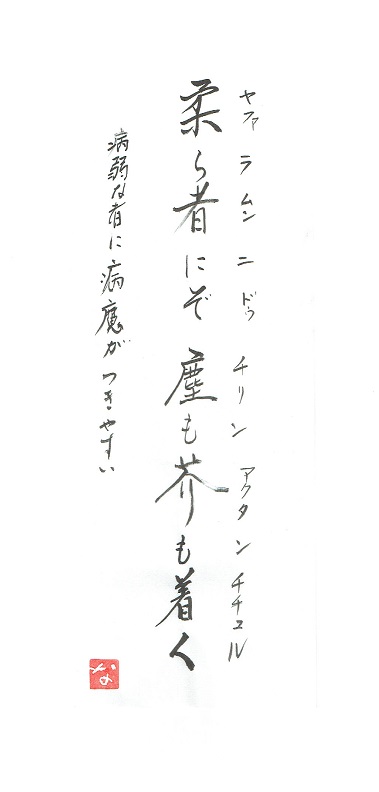 ヤファラムンニドゥチリンアクタンチチュル
柔ら者にぞ塵も芥も着く
病弱な者に病魔がつきやすい